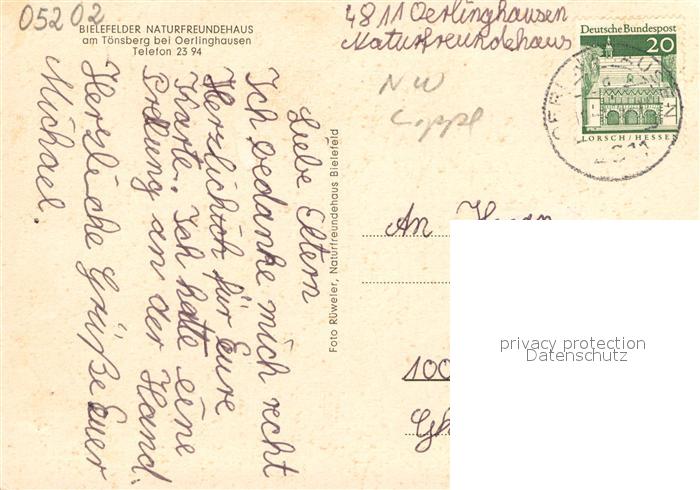 05202
BIELEFELDER NATURFREUNDEHAUS
am Tönsberg bei Oerlinghausen
Telefon 23 94
4811 Oerlinghausen
Naturfreundehaus
Deutsche Bundespost
20
LORSCH/HESSEN
NW
Liebe Eltern
Ich bedanke mich recht
Herzlichich für Eure
Karte. Ich hatte eine
Prellung an der Hand.
Herzliche Grüße Euer
Michael.
Foto Rüweler, Naturfreundehaus Bielefeld
An
100
privacy protection
Datenschutz